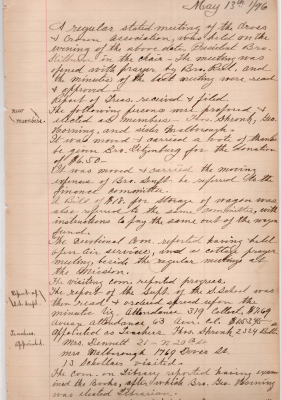 May 13th /96
A regular stated meeting of the Cross
& Crown Association, was held on the
evening of the above date, President Bro.
in the chair. The meeting was
opened with prayer by Bro. and
the minutes of the last meeting were read
& approved
Report of Treas. received & filed.
New members.
The following persons were proposed &
elected as members - Thos. Shronk, Geo.
Horning, and sister Malbrough.
It was moved & carried a vote of thanks
be given Bro. for the donation
of $6.50-
It was moved & carried the moving
expenses of Bro. Supt. be referred to the
finance committee.
A Bill of $18. for storage of wagon was
also referred to the same committee, with
instructions to pay the same out of the wagon
fund.
The devotional Com. reported having held
open air services, and a cottage prayer
meeting, beside the regular meeting at
the Mission.
The visiting com. reported progress.
Report of
The report of the Supt. of the S. School was
then read & ordered spread upon the
minutes viz. Attendance. 319 Collect. $7.69
Average attendance 63 Aver. Col.
Teachers Appointed.
Appointed as Teachers Thos. Shronk 2324
Mrs. Bennett 21- N 20th St
Mrs Malbrough 1769
13 Scholars visited-
The Com. on Library reported having exam
ined the Books, after which Bro. Geo. Horning
was elected Librarian.